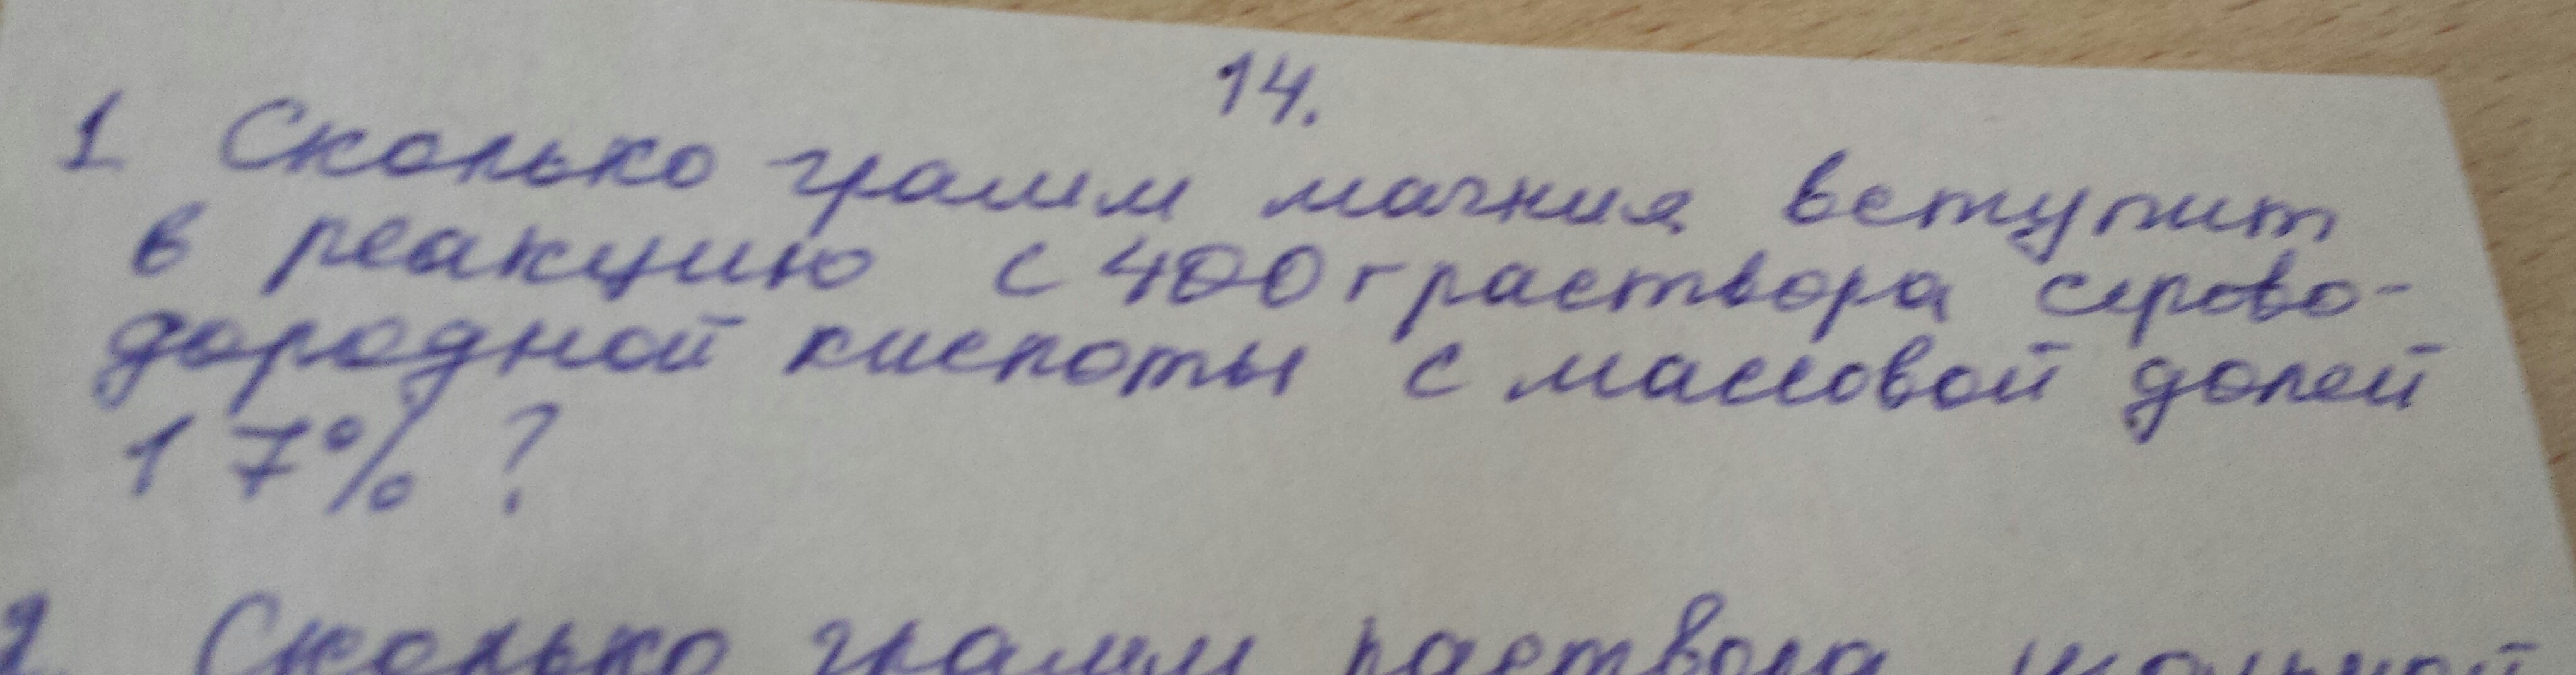 14.
1 Сколько грамм магния вступит
в реакцию с 400 г раствора серово-
дородной кислоты с массовой долей
17% ?
2 Сколько грамм раствора